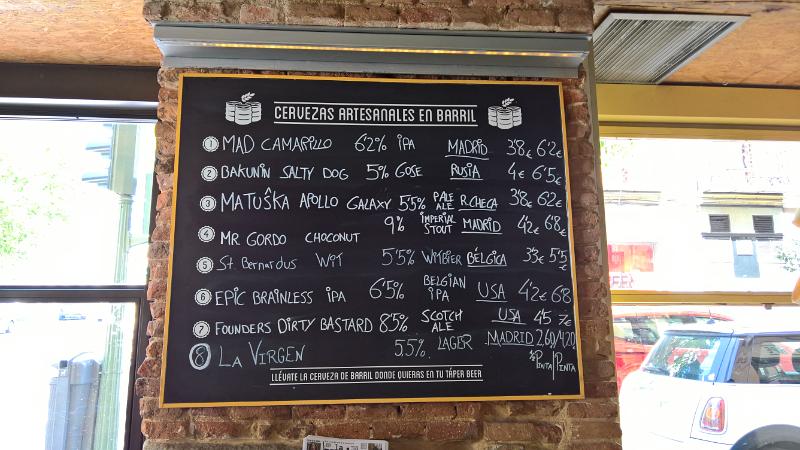 CERVEZAS ARTESANALES EN BARRIL
1 MAD CAMARILLO 6'2% IPA MADRID 3'8€ 6'2€
2 BAKUNIN SALTY DOG 5% GOSE RUSIA 4€ 6'5€
3 MATUŠKA APOLLO GALAXY 5'5% PALE ALE R.CHECA 3'8€ 6'2€
4 MR GORDO CHOCONUT 9% IMPERIAL STOUT MADRID 4'2€ 6'8€
5 St. Bernardus Wit 5'5% WITBIER BÉLGICA 3'3€ 5'5€
6 EPIC BRAINLESS IPA 6'5% BELGIAN IPA USA 4'2€ 6'8
7 FOUNDERS DIRTY BASTARD 8'5% SCOTCH ALE USA 4'5 7€
8 LA VIRGEN 5.5% LAGER MADRID 2.60/4.20
½ PINTA/PINTA
LLÉVATE LA CERVEZA DE BARRIL DONDE QUIERAS EN TU TÁPER BEER